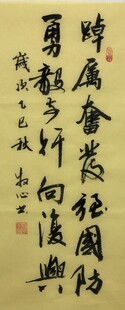 踔厲奮發强國防
勇毅前行向復興
歲次乙巳秋 牧心书